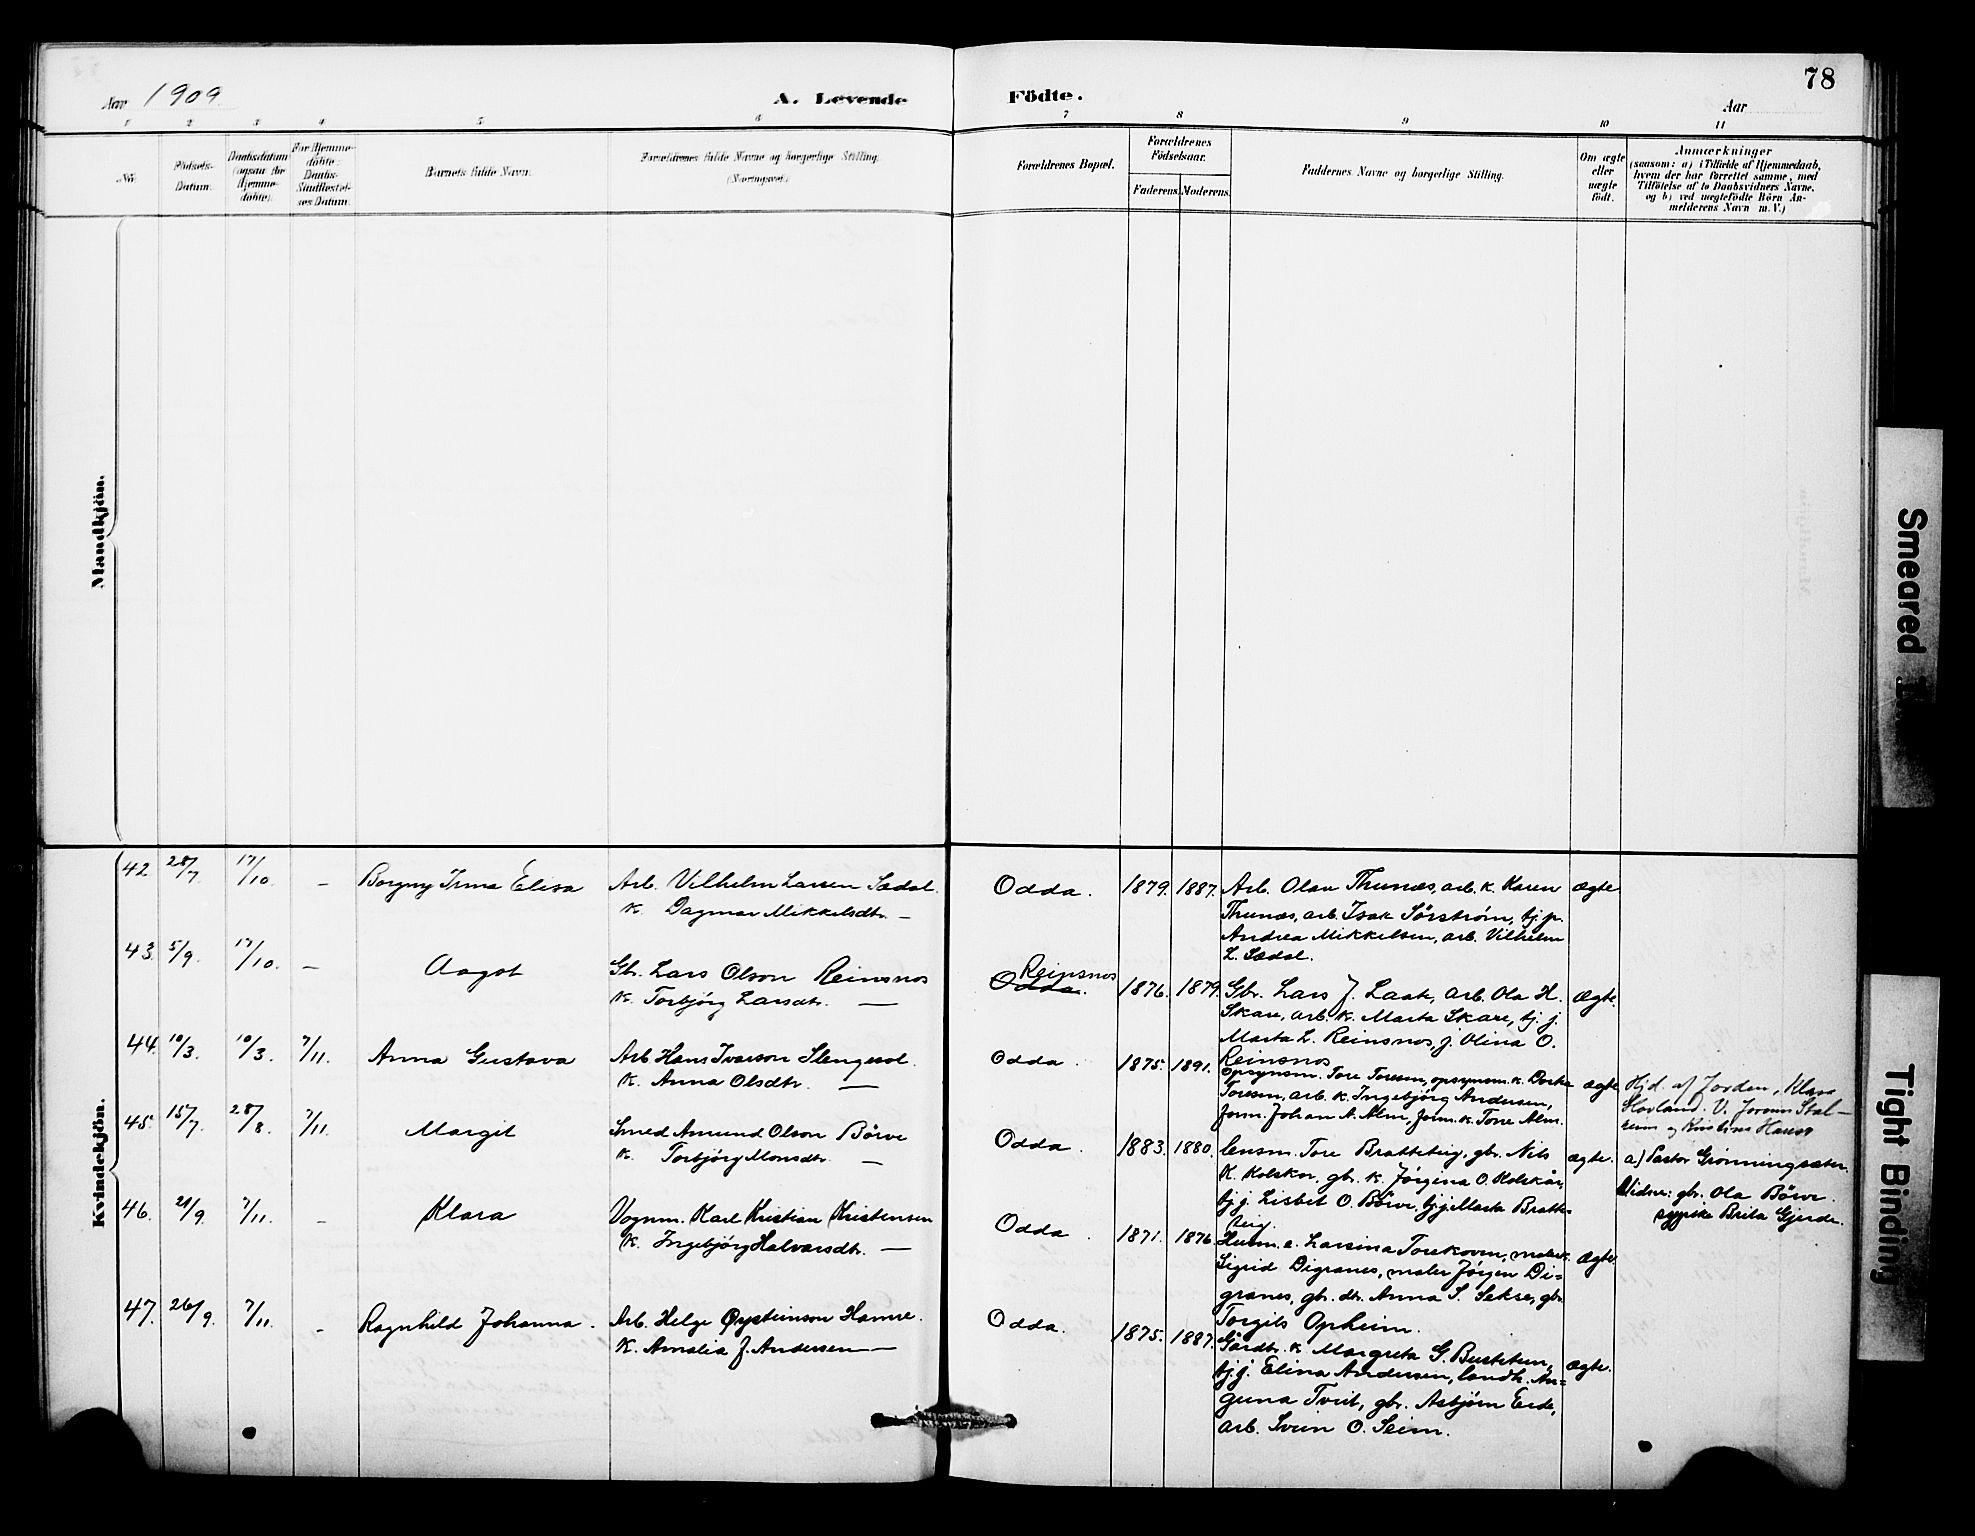 78
Aar 1909
A. Levende Födte.
Aar
1 2 3 4 5 6 7 8 9 10 11
No.
Födsels-Datum.
Daabsdatum (ogsaa for Hjemme-döbte).
For Hjemme-döbte: Daabs-Stadfæstel-ses Datum.
Barnets fulde Navn.
Forældrenes fulde Navne og borgerlige Stilling. (Næringsvei).
Forældrenes Bopæl.
Forældrenes Födselsaar.
Faderens. Moderens.
Faddernes Navne og borgerlige Stilling.
Om ægte eller uægte födt.
Anmærkninger
(saasom: a) i Tilfælde af Hjemmedaab,
hvem der har forrettet samme, med
Tilföielse af to Daabsvidners Navne,
og b) ved uægtefödte Börn An-
melderens Navn m. V.)
Mandkjön.
Kvindekjön.
42 28/7 17/10 – Borgny Irma Elisa
Arb. Vilhelm Larsen Sædal.
K. Dagmar Mikkelsdtr. —
Odda. 1879. 1887.
Arb. Olav Thunæs, arb. k. Karen
Thunæs, arb. Isak Sörström, tj. p.
Andrea Mikkelsen, arb. Vilhelm
L. Sædal.
ægte
43. 5/9. 17/10. – Aagot
Gbr. Lars Olson Reinsnos
K. Torbjörg Larsdtr. —
Reinsnos
Odda. 1876. 1879.
Gbr. Lars J. Laate, arb. Ola H.
Skare, arb. k. Marta Skare, tj. j.
Marta L. Reinsnos, j. Olina O.
Reinsnos
ægte.
44. 10/3. 10/3. 7/11. Anna Gustava
Arb Hans Ivarson
K. Anna Olsdtr. —
Odda. 1875. 1891.
Opsynsm. Tore Toresen, opsynsm. k.
Toresen, arb. k. Ingebjörg Andersen,
form. Johan A. Alm, form. k. Tone Alm.
ægte
Hjd. af Jordm. Klara
Hovland. V.
og Kristine
45. 15/7. 28/8. 7/11. Margit
Smed Amund Olson Börve
K. Torbjörg Monsdtr. —
Odda. 1883. 1880.
Lensm. Tore Bratteteig, gbr. Nils
K. Kolskor, gbr. k. Jørgina O. Kolskår,
tj. j. Lisbet O. Börve, tj. j. Marta Bratte-
teig.
ægte.
a) Pastor Grønningsæter.
Vidne: gbr. Ola Börve.
Brita Gjerde.
46. 29/9. 7/11. – Klara
Vognm. Karl Kristian Kristensen
K. Ingebjörg Halvarsdtr. —
Odda. 1871. 1876.
Husm. e. Larsina Torekoven, maler k.
Sigrid Digranes, maler Jørgen Di=
granes, gbr. dtr. Anna S. Sekse, gbr.
Torgils Opheim.
ægte.
47. 26/9. 7/11. – Ragnhild Johanna.
Arb. Helge Øysteinson Hamre.
K. Amalia J. Andersen —
Odda. 1875. 1887.
Gårdbr. k. Margreta G. Bustetun,
tj. j. Elina Andersen, landh. An=
guna Tveit, gbr. Asbjørn Eide,
arb. Svein O. Seim.
ægte.
Smeared
Tight Binding